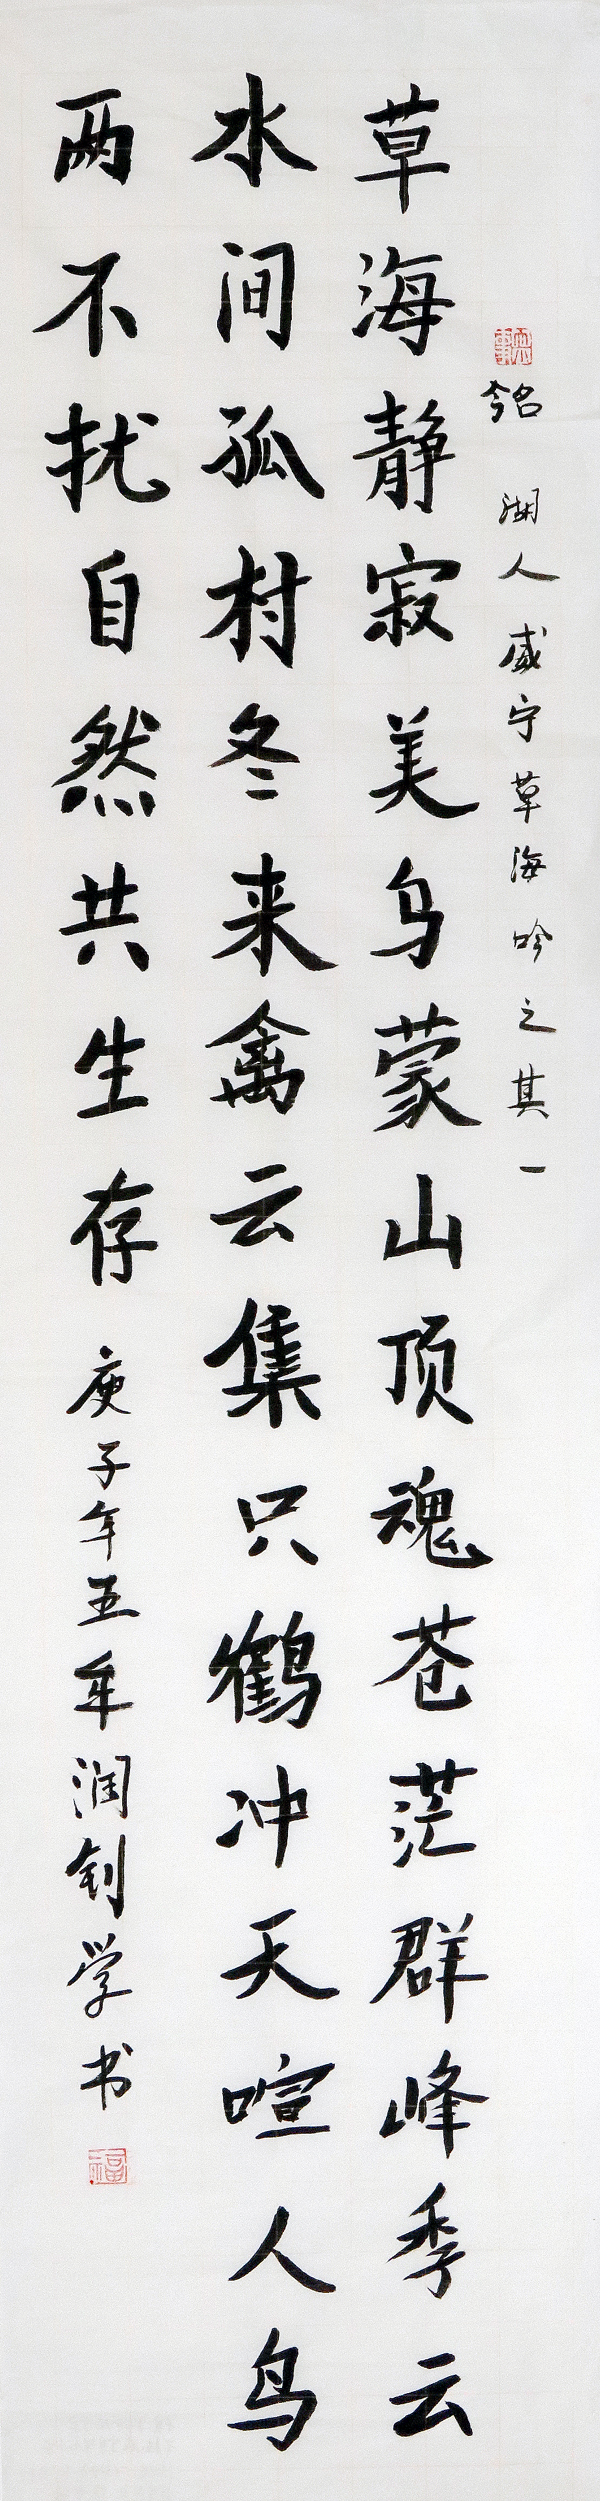 湖人威宁草海吟之其一
草海静寂美乌蒙山顶魂苍茫群峰秀云
水间孤村冬来禽云集只鹤冲天喧人鸟
两不扰自然共生存
庚子年五年润钊学书
福